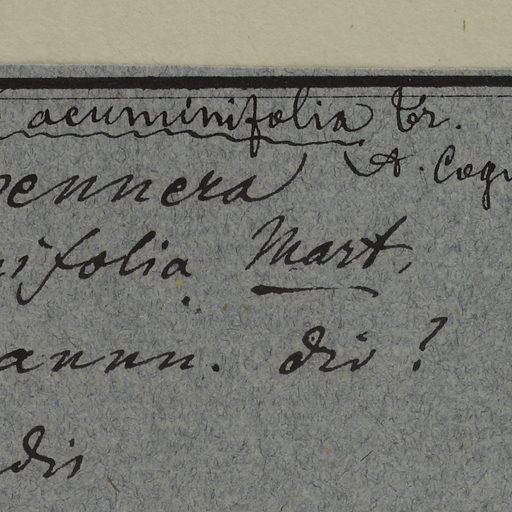 acuminifolia Tr.
A. Cogn
pennera
nifolia Mart,
annn. div?
dis